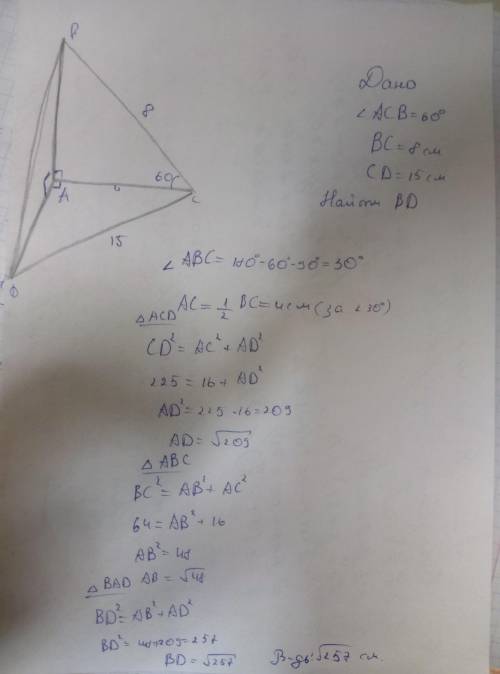 B
8
60°
A
C
15
D
Дано
∠ACB = 60°
BC = 8 см
CD = 15 см
Найти BD
∠ABC = 180° - 60° - 90° = 30°
△ACD AC = 1/2 BC = 4 см (за ∠30°)
CD² = AC² + AD²
225 = 16 + AD²
AD² = 225 - 16 = 209
AD = √209
△ABC
BC² = AB² + AC²
64 = AB² + 16
AB² = 48
△BAD AB = √48
BD² = AB² + AD²
BD² = 48 + 209 = 257
BD = √257 В-дь: √257 см.